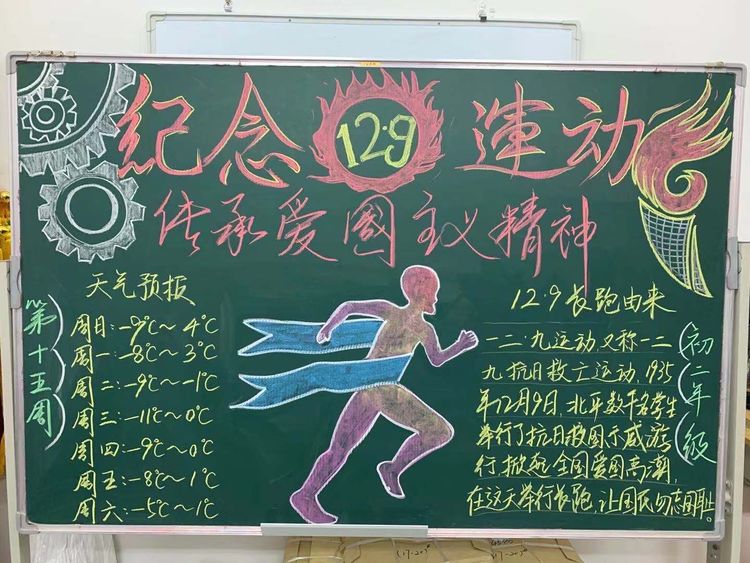 紀念 12·9 運动
传承爱國主议精神
第十五周
天气预报
周日:-9℃~4℃
周一:-8℃~3℃
周二:-9℃~-1℃
周三:-11℃~0℃
周四:-9℃~0℃
周五:-8℃~1℃
周六:-5℃~1℃
12·9长跑由来
一二·九运动,又称一二
九抗日救亡运动,1935
年12月9日,北平数千名学生
举行了抗日救国示威游
行掀起全国爱国高潮,
在这天举行长跑,让国民勿忘国耻。
初二年级